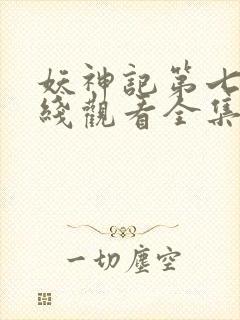 妖神記第七
綫觀看全集
一切塵空